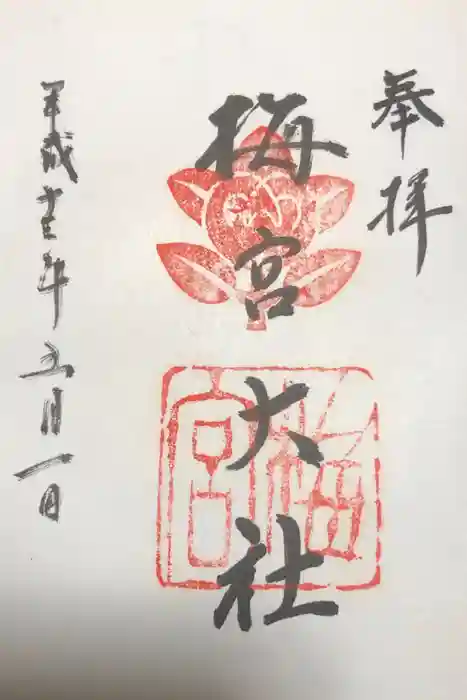 奉拝
梅宮大社
平成十三年五月一日
梅宮